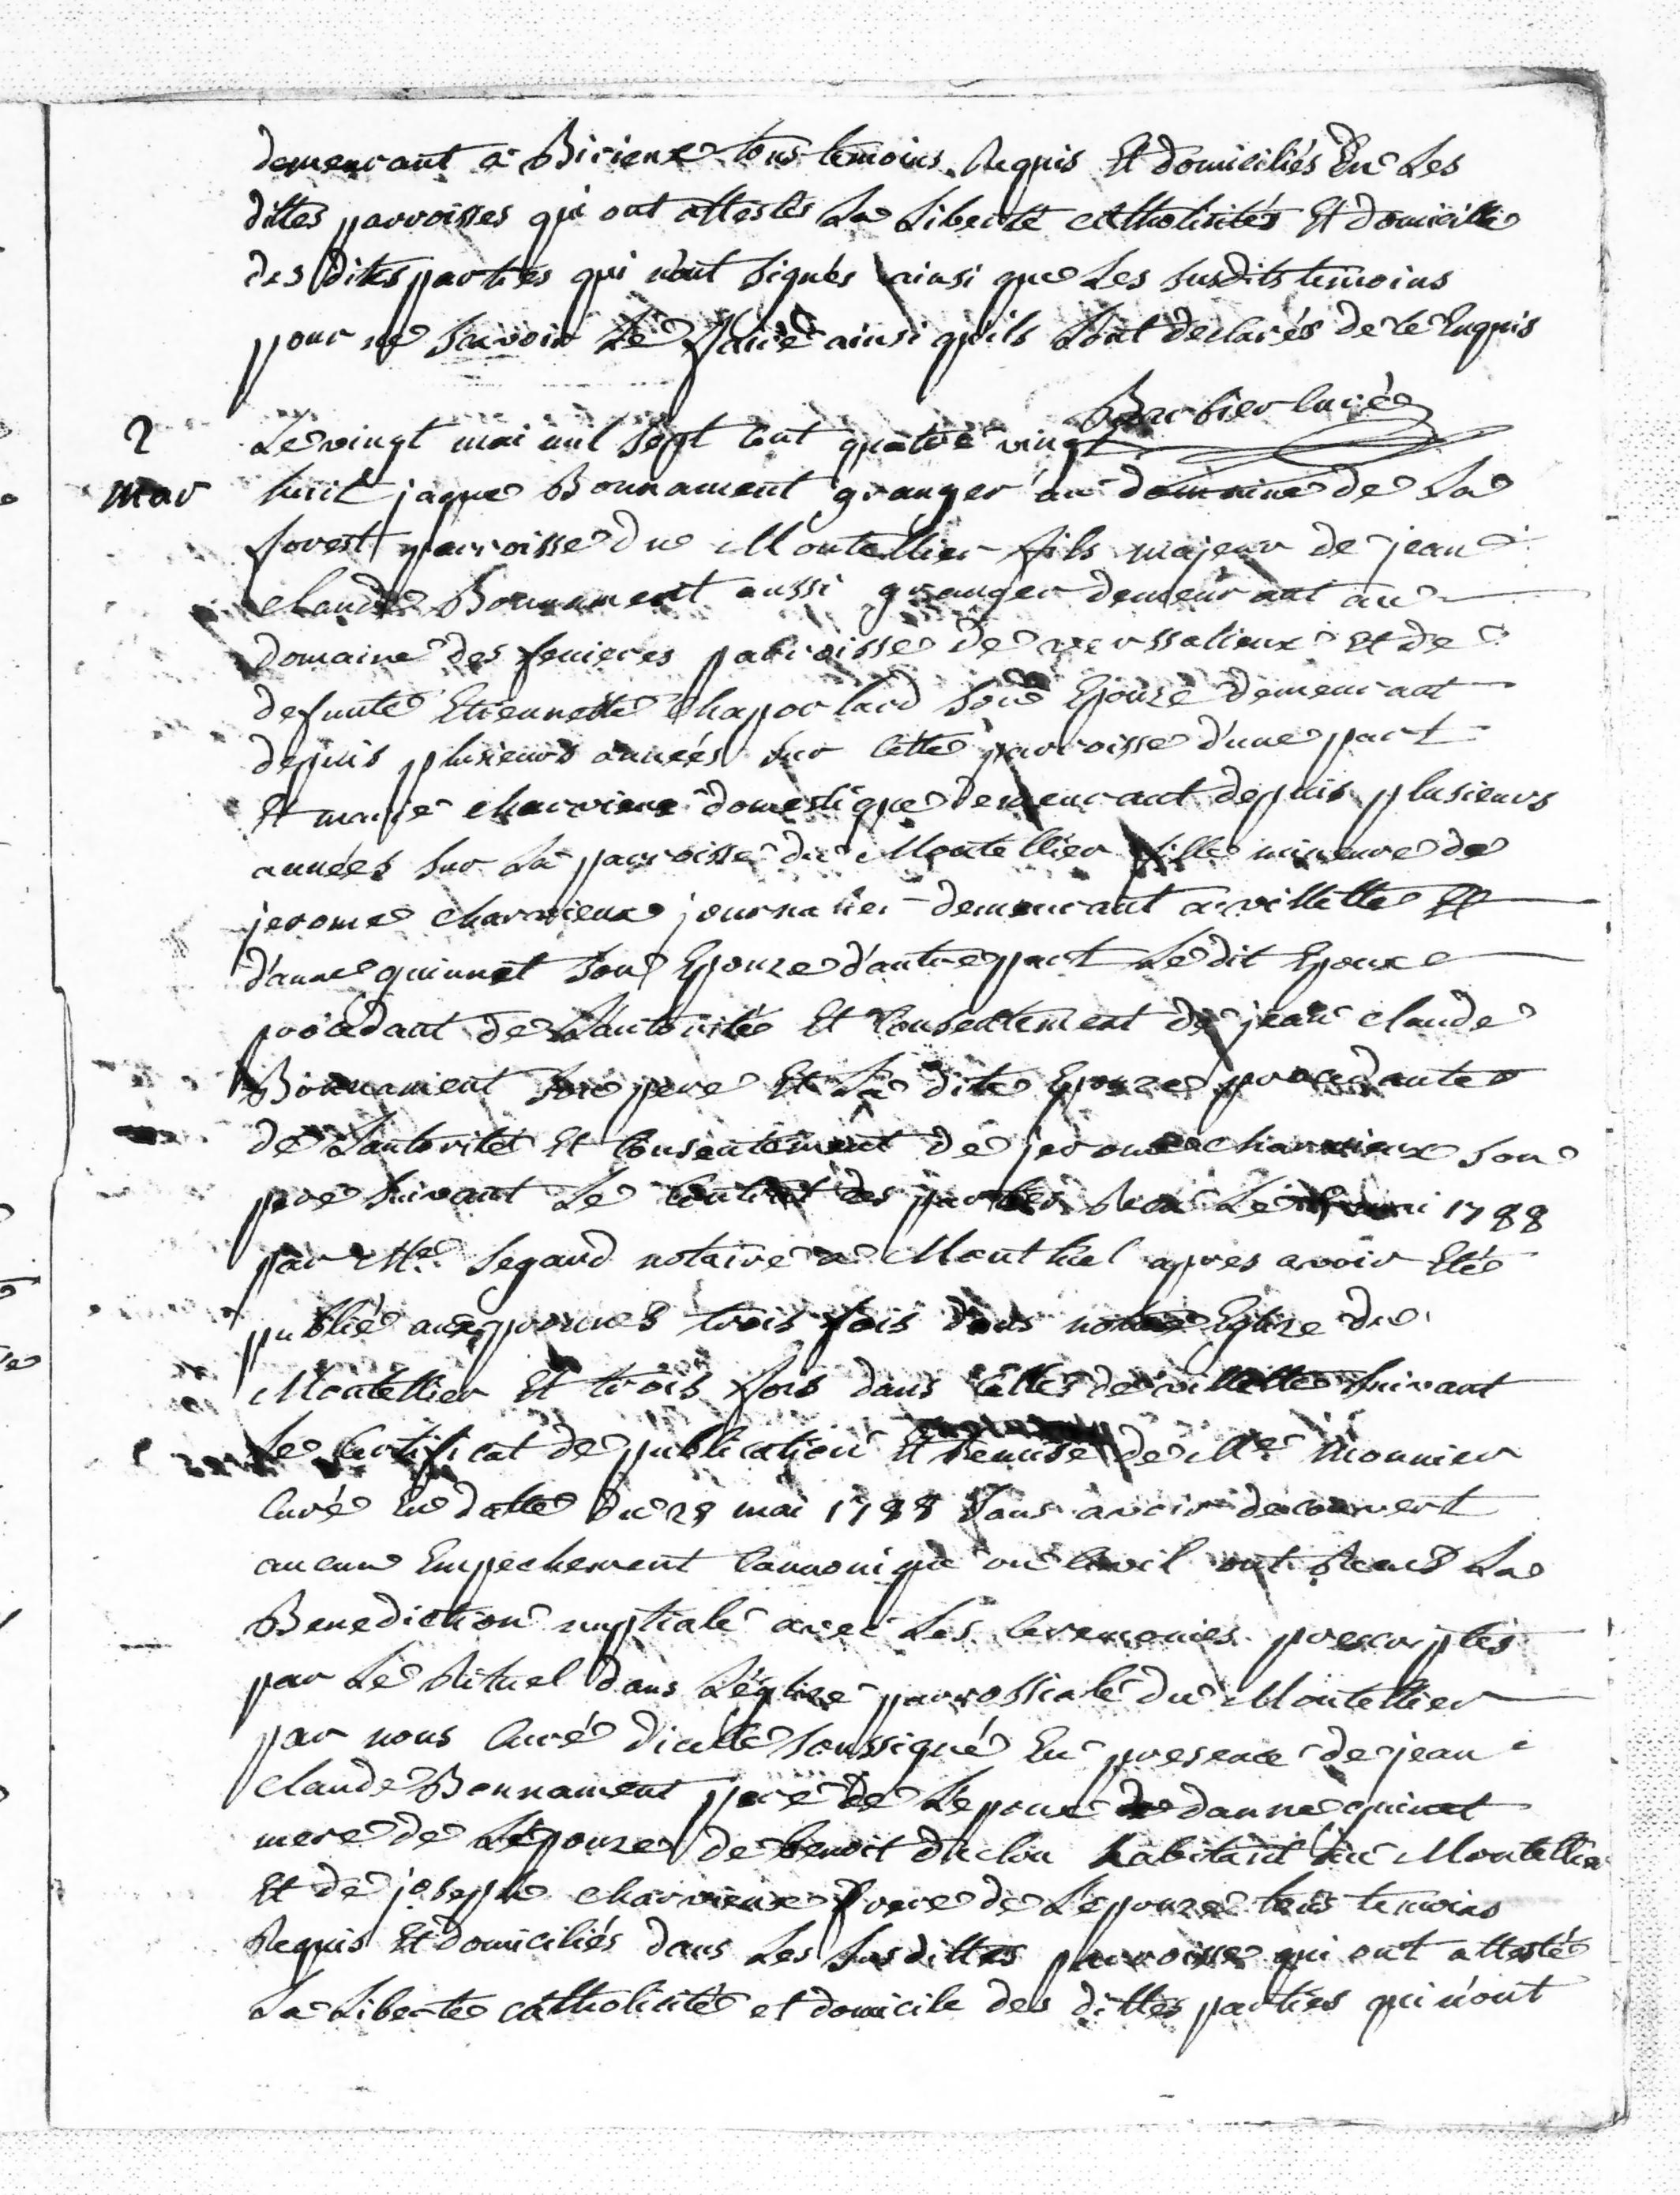 demeurant a Birieux tous temoins Requis Et domiciliés En Les
dittes parroisses qui ont attestés La Liberté catholicités Et domicille
des dites parties qui n'ont signés ainsi que Les susdits temoins
pour ne savoir Le faire ainsi qu'ils L'ont declarés de ce Enquis
Barbier curé
2 Le vingt mai mil sept cent quatre vingt
mar huit jaque Bonnament granger au domaine de La
forest parroisse du Montellier fils majeur de jean
claude Bonnament aussi granger demeurant au
domaine des parroisse de verssalieux Et de
defunte Etiennette Chapolard son Epouze demeurant
depuis plusieurs années sur cette parroisse d'une part
Et marie charvieux domestique demeurant depuis plusieurs
années sur La parroisse du Montellier fille mineure de
jerome charvieux journalier demeurant a villette Et
d'anne quinnet son Epouze d'autre part Le dit Epoux
procédant de L'autorité Et Consentement de jean claude
Bonnament son pere Et La dite Epouze procedante
de L'autorité Et Consentement de jerome charvieux son
pere suivant Le Contrat des parties Recu Le mai 1788
par Me. Segaud notaire a Montluel apres avoir Eté
publié aux prones trois fois dans notre Eglize du
Montellier Et trois fois dans celles de villette suivant
Le Certificat de publication Et Remise de Mr. monnier
Curé En datte du 28 mai 1788 sans avoir decouvert
aucun Empechement Cannonique ou Civil ont Recus La
Benediction nuptiale avec Les Ceremonies prescriptes
par Le Rituel dans L'églize parrossiale du Montellier
par nous Curé dicelle soussigné En presence de jean
claude Bonnament pere de L'epoux danne quinet
mere de L'epouze de benoit duclou habitant au Montellier
Et de joseph charvieux frere de L'epouze tous temoins
Requis Et domiciliés dans Les susdittes parroisse qui ont attesté
La Liberte catholicité et domicile des dittes parties qui n'ont